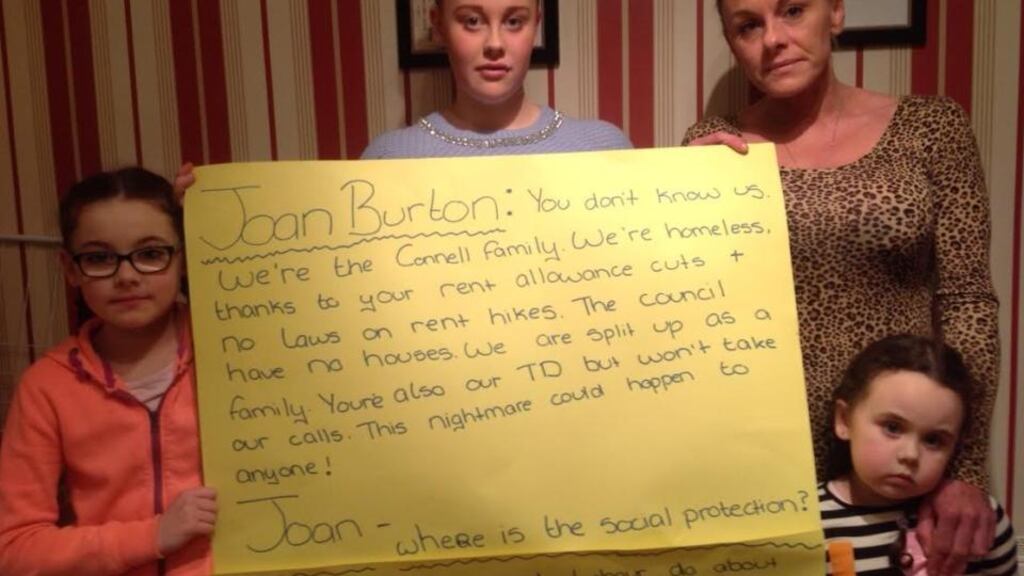 Joan Burton: You don't know us.
We're the Connell Family. We're homeless,
thanks to your rent allowance cuts +
no laws on rent hikes. The council
have no houses. We are split up as a
family. You're also our TD but won't take
our calls. This nightmare could happen to
anyone!
Joan - where is the social protection?
do about